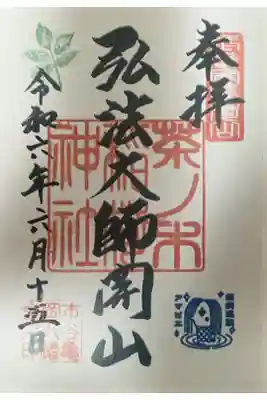 奉拝
弘法大師開山
茶ノ木
稲荷
神社
令和六年六月十五日